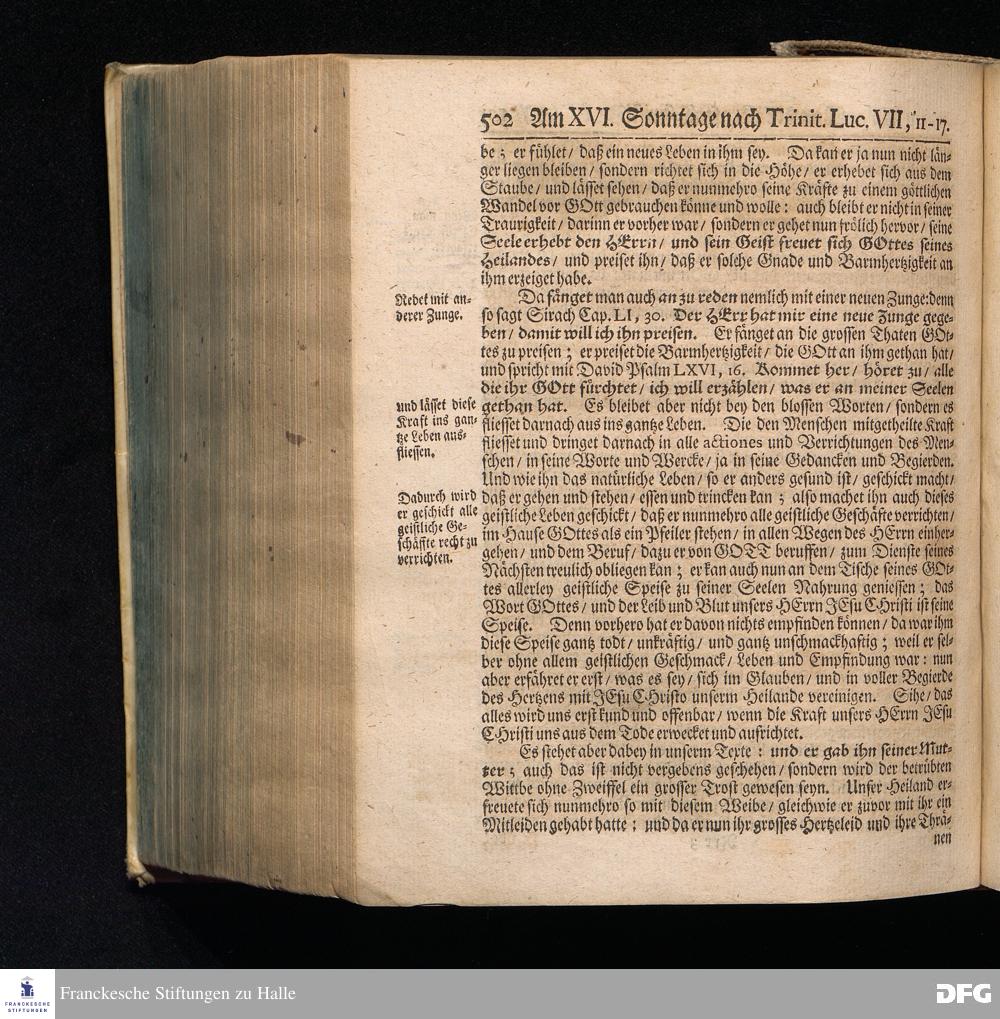 502 Am XVI. Sonntage nach Trinit. Luc. VII, 11-17.
be; er fühlet/ daß ein neues Leben in ihm sey. Da kan er ja nun nicht län-
ger liegen bleiben/ sondern richtet sich in die Höhe/ er erhebet sich aus dem
Staube/ und lässet sehen/ daß er nunmehro seine Kräfte zu einem göttlichen
Wandel vor GOtt gebrauchen könne und wolle: auch bleibt er nicht in seiner
Traurigkeit/ darinn er vorher war/ sondern er gehet nun frölich hervor/ seine
Seele erhebt den HErrn/ und sein Geist freuet sich GOttes seines
Heilandes/ und preiset ihn/ daß er solche Gnade und Barmhertzigkeit an
ihm erzeiget habe.
Redet mit an-
derer Zunge.
Da fänget man auch an zu reden nemlich mit einer neuen Zunge: denn
so sagt Sirach Cap. LI, 30. Der HErr hat mir eine neue Zunge gege-
ben/ damit will ich ihn preisen. Er fänget an die grossen Thaten GOt-
tes zu preisen; er preiset die Barmhertzigkeit/ die GOtt an ihm gethan hat/
und spricht mit David Psalm LXVI, 16. Kommet her/ höret zu/ alle
die ihr GOtt fürchtet/ ich will erzählen/ was er an meiner Seelen
und lässet diese
Kraft ins gan-
tze Leben aus-
fliessen.
gethan hat. Es bleibet aber nicht bey den blossen Worten/ sondern es
fliesset darnach aus ins gantze Leben. Die den Menschen mitgetheilte Kraft
fliesset und dringet darnach in alle actiones und Verrichtungen des Men-
schen/ in seine Worte und Wercke/ ja in seine Gedancken und Begierden.
Und wie ihn das natürliche Leben/ so er anders gesund ist/ geschickt macht/
Dadurch wird
er geschickt alle
geistliche Ge-
schäffte recht zu
verrichten.
daß er gehen und stehen/ essen und trincken kan; also machet ihn auch dieses
geistliche Leben geschickt/ daß er nunmehro alle geistliche Geschäfte verrichten/
im Hause GOttes als ein Pfeiler stehen/ in allen Wegen des HErrn einher-
gehen/ und dem Beruf/ dazu er von GOTT beruffen/ zum Dienste seines
Nächsten treulich obliegen kan; er kan auch nun an dem Tische seines GOt-
tes allerley geistliche Speise zu seiner Seelen Nahrung geniessen; das
Wort GOttes/ und der Leib und Blut unsers HErrn JEsu CHristi ist seine
Speise. Denn vorhero hat er davon nichts empfinden können/ da war ihm
diese Speise gantz todt/ unkräftig/ und gantz unschmackhaftig; weil er sel-
ber ohne allem geistlichen Geschmack/ Leben und Empfindung war: nun
aber erfähret er erst/ was es sey/ sich im Glauben/ und in voller Begierde
des Hertzens mit JEsu CHristo unserm Heilande vereinigen. Sihe/ das
alles wird uns erst kund und offenbar/ wenn die Kraft unsers HErrn JEsu
CHristi uns aus dem Tode erwecket und aufrichtet.
Es stehet aber dabey in unserm Texte: und er gab ihn seiner Mut-
ter; auch das ist nicht vergebens geschehen/ sondern wird der betrübten
Wittbe ohne Zweiffel ein grosser Trost gewesen seyn. Unser Heiland er-
freuete sich nunmehro so mit diesem Weibe/ gleichwie er zuvor mit ihr ein
Mitleiden gehabt hatte: und da er nun ihr grosses Hertzeleid und ihre Thrä-
nen
FRANCKESCHE
STIFTUNGEN
Franckesche Stiftungen zu Halle
DFG